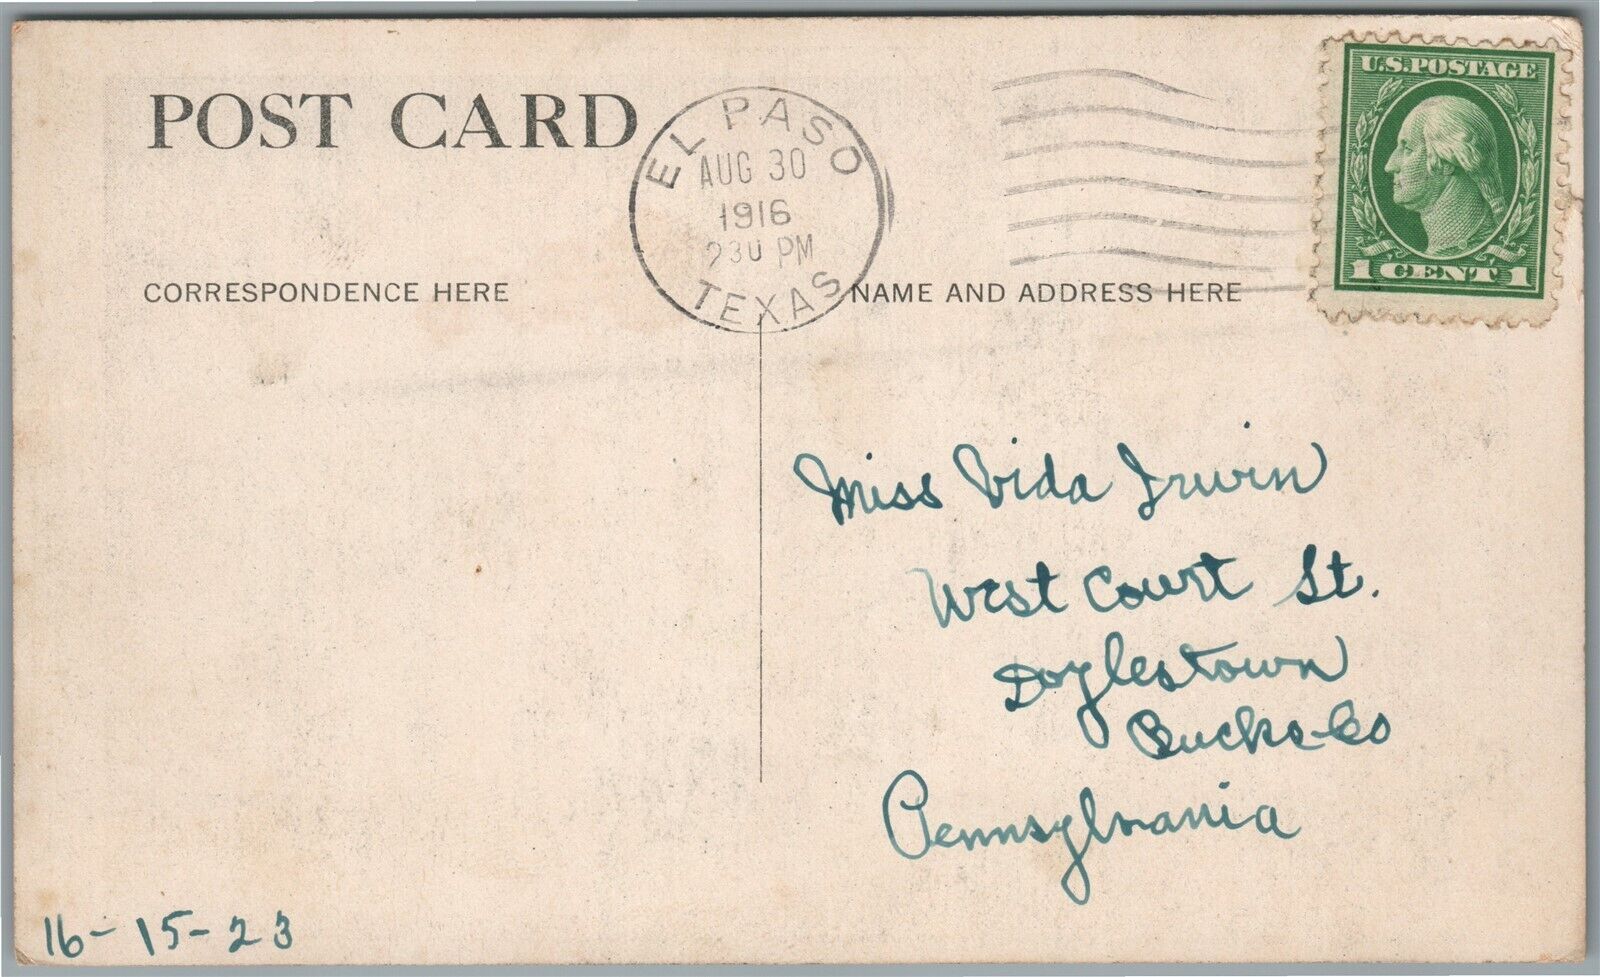 POST CARD
EL PASO
AUG 30
1916
230 PM
TEXAS
U.S. POSTAGE
1 CENT 1
CORRESPONDENCE HERE
NAME AND ADDRESS HERE
Miss Vida Irwin
West Court St.
Doylestown
Bucks-Co
Pennsylvania
16-15-23